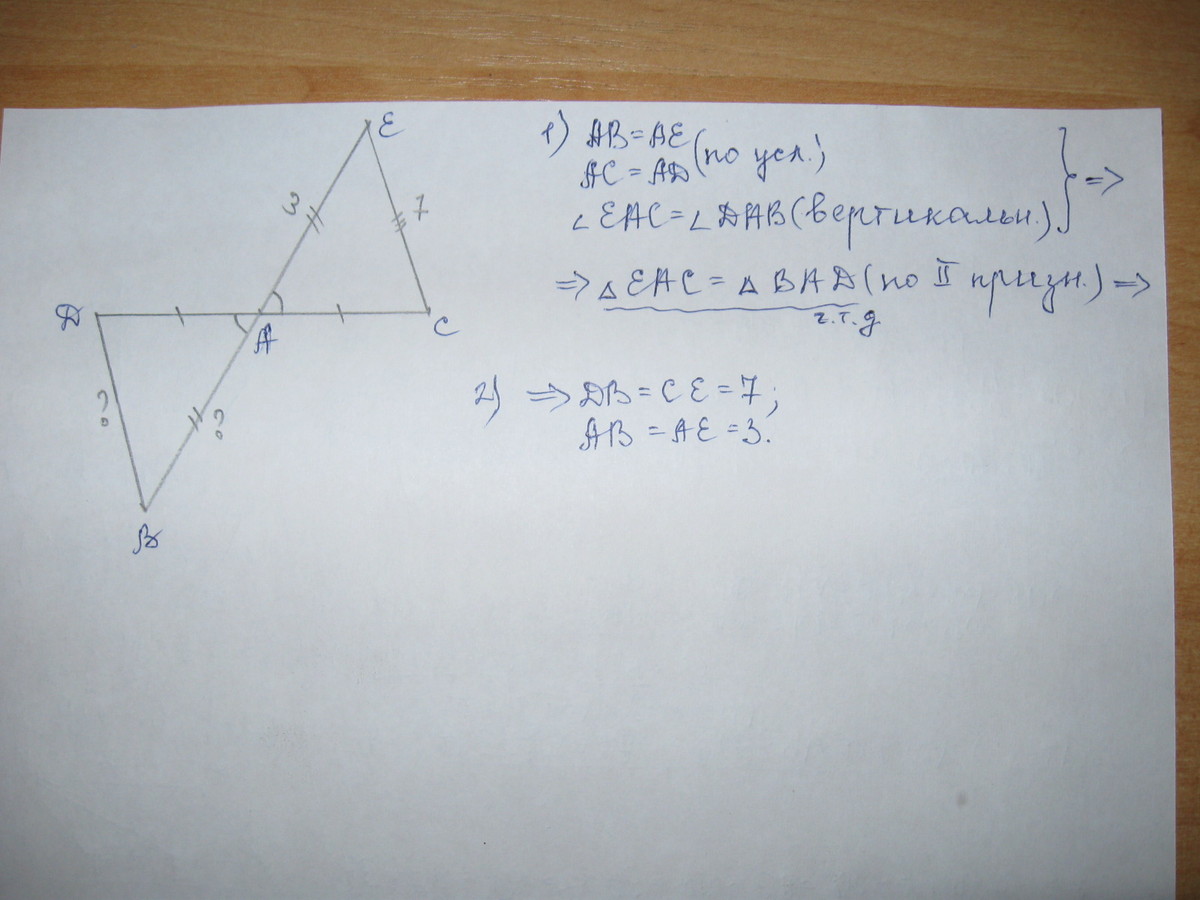 E
3
7
D
A
C
?
?
B
1) AB = AE
AC = AD (по усл.)
∠EAC = ∠DAB (вертикальн.) } =>
=> △EAC = △BAD (по II призн.) =>
ч.т.д
2) => DB = CE = 7;
AB = AE = 3.